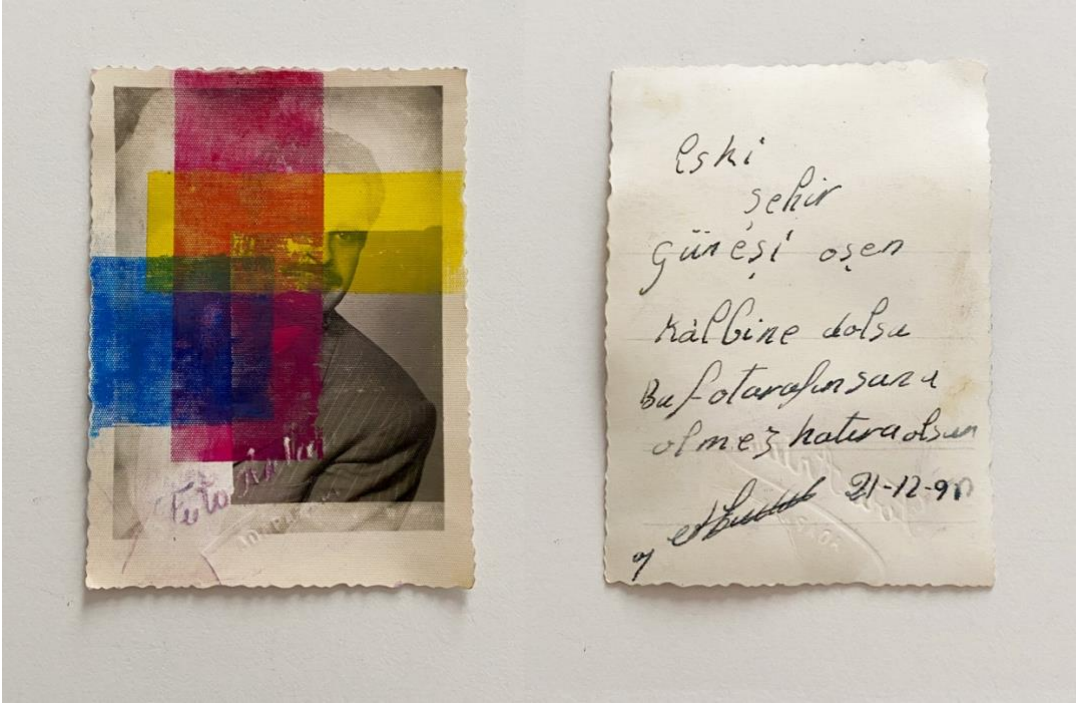 Foto
Eski
şehir
güneşi oşen
Kàlbine dolsu
Bu fotarafın sana
olmez hatıra olsun
21-12-90